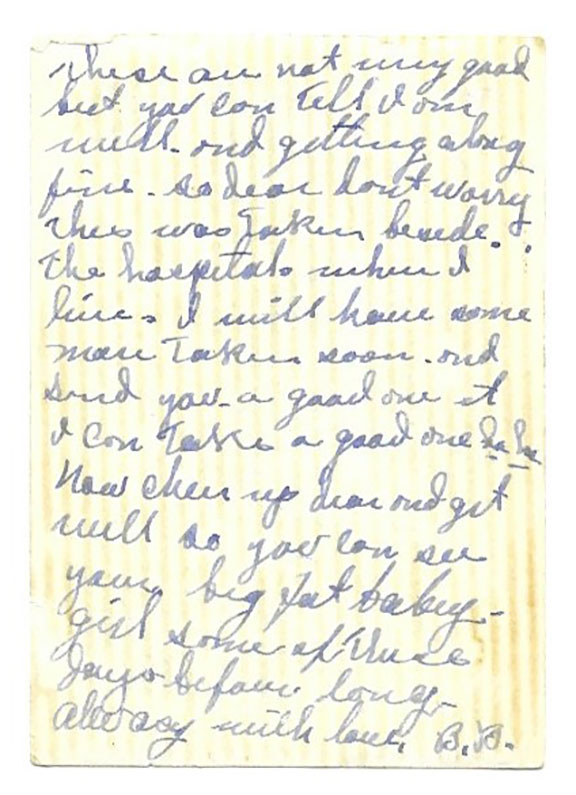 These are not very good
but you can tell I am
well - and getting along
fine - so dear dont worry
this was taken beside
the hospital where I
live. I will have some
more taken soon - and
send you - a good one if
I can take a good one Ha Ha
Now cheer up dear and get
well so you can see
your big fat baby -
girl some of these
days before long -
allways with love, B.B.